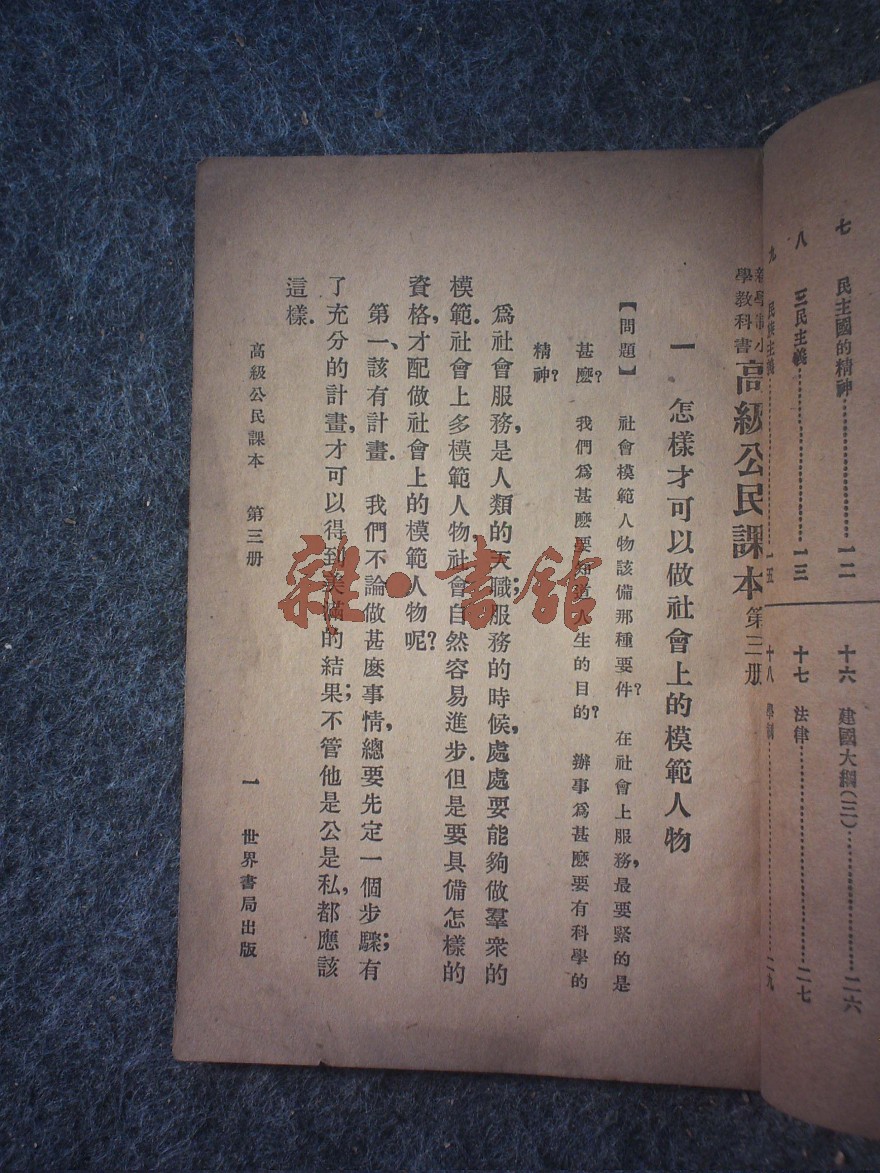 七 民主國的精神 一二
八 三民主義 一三
九 民族主義 一五
十六 建國大綱(三) 二六
十七 法律 二七
十八 學制 二九
新學制小學教科書 高級公民課本 第三册
一 怎樣才可以做社會上的模範人物
【問題】 社會模範人物該備那種要件? 在社會上服務,最要緊的是
甚麽? 我們爲甚麽要知道人生的目的? 辦事爲甚麽要有科學的
精神?
爲社會服務,是人類的天職;服務的時候,處處要能夠做羣衆的
模範.社會上多模範人物,社會自然容易進步.但是要具備怎樣的
資格,才配做社會上的模範人物呢?
第一、該有計畫. 我們不論做甚麽事情,總要先定一個步驟;有
了充分的計畫,才可以得到美滿的結果;不管他是公是私,都應該
這樣.
高級公民課本 第三册 一 世界書局出版
雜·書館